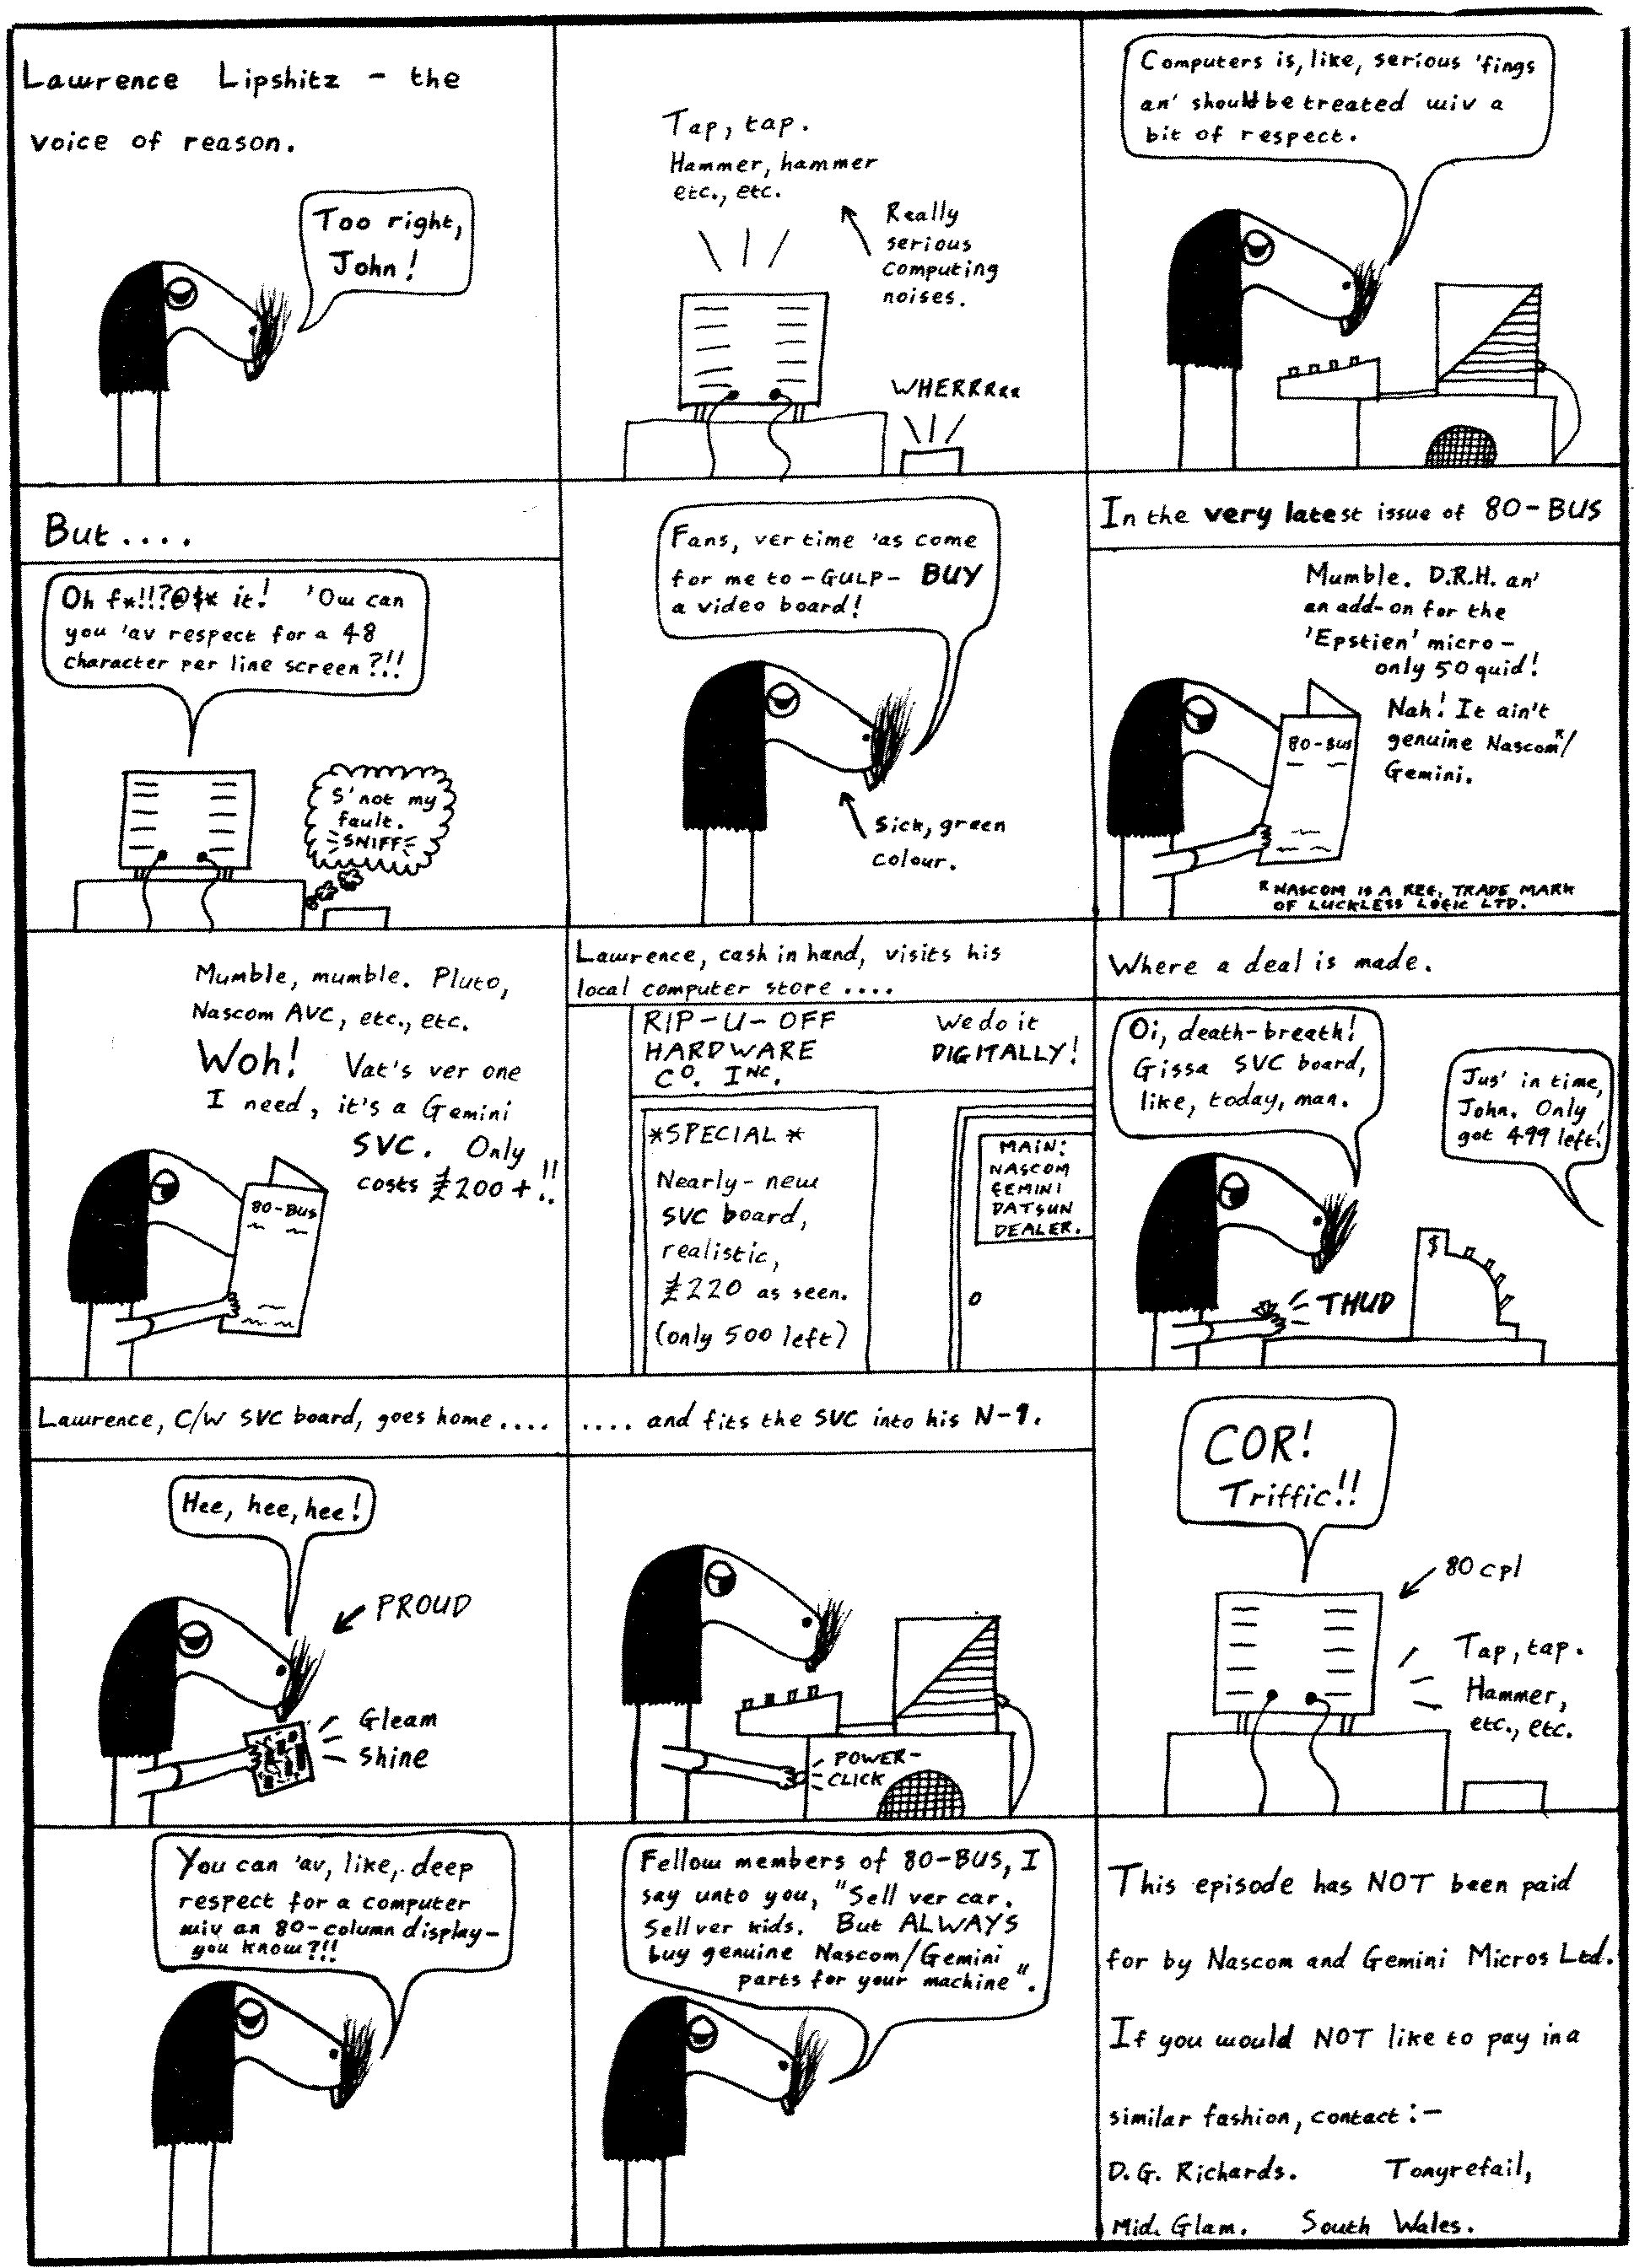 Lawrence Lipshitz - the
voice of reason.
Too right,
John!
Tap, tap.
Hammer, hammer
etc., etc.
Really
serious
computing
noises.
WHERRRRR
Computers is, like, serious 'fings
an' should be treated wiv a
bit of respect.
But....
Oh f*!!?@$* it! 'Ow can
you 'av respect for a 48
character per line screen?!!
S'not my
fault.
SNIFF
Fans, ver time 'as come
for me to -GULP- BUY
a video board!
Sick, green
colour.
In the very latest issue of 80-BUS
Mumble. D.R.H. an'
an add-on for the
'Epstien' micro -
only 50 quid!
Nah! It ain't
genuine Nascom*/
Gemini.
80-Bus
* NASCOM IS A REG. TRADE MARK
OF LUCKLESS LOGIC LTD.
Mumble, mumble. Pluto,
Nascom AVC, etc., etc.
Woh! Vat's ver one
I need, it's a Gemini
SVC. Only
costs £200+!!
80-Bus
Lawrence, cash in hand, visits his
local computer store ....
RIP-U-OFF
HARDWARE
CO. INC.
We do it
DIGITALLY!
*SPECIAL*
Nearly-new
SVC board,
realistic,
£220 as seen.
(only 500 left)
MAIN:
NASCOM
GEMINI
DATSUN
DEALER.
Where a deal is made.
Oi, death-breath!
Gissa SVC board,
like, today, man.
Jus' in time,
John. Only
got 499 left!
$
THUD
Lawrence, C/W SVC board, goes home....
Hee, hee, hee!
PROUD
Gleam
Shine
.... and fits the SVC into his N-1.
POWER-
CLICK
COR!
Triffic!!
80 cpl
Tap, tap.
Hammer,
etc., etc.
You can 'av, like, deep
respect for a computer
wiv an 80-column display-
you know?!!
Fellow members of 80-BUS, I
say unto you, "Sell ver car.
Sell ver kids. But ALWAYS
buy genuine Nascom/Gemini
parts for your machine".
This episode has NOT been paid
for by Nascom and Gemini Micros Ltd.
If you would NOT like to pay in a
similar fashion, contact:-
D.G. Richards. Tonyrefail,
Mid. Glam. South Wales.